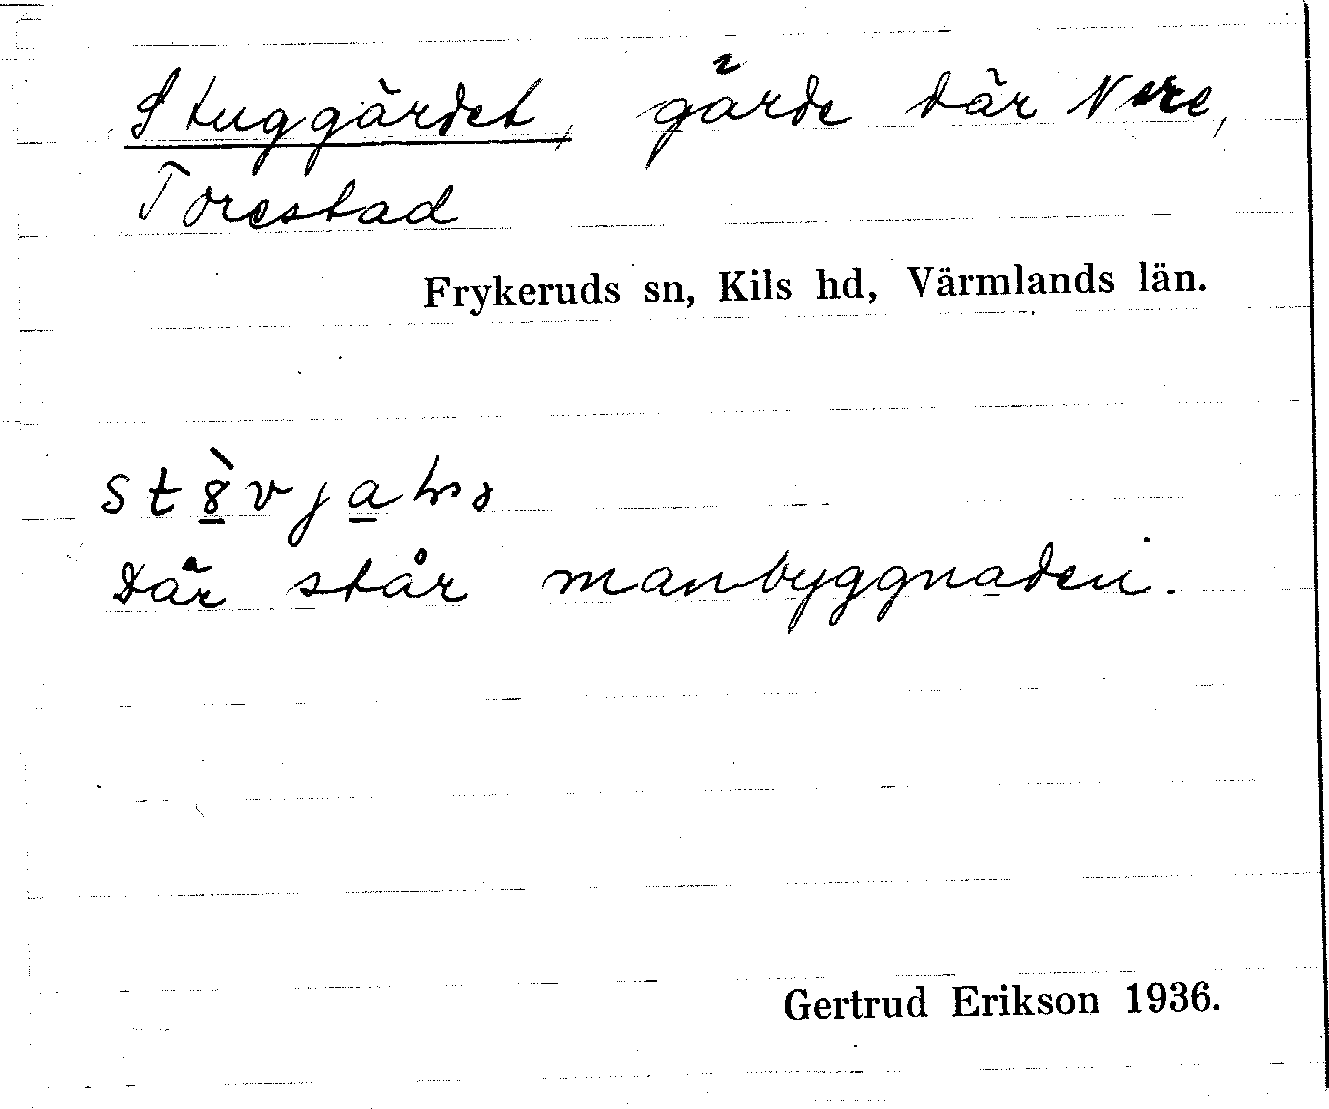 Stuggärdet, gärde där Nere,
Torestad
Frykeruds sn, Kils hd, Värmlands län.
Där står manbyggnaden.
Gertrud Erikson 1936.